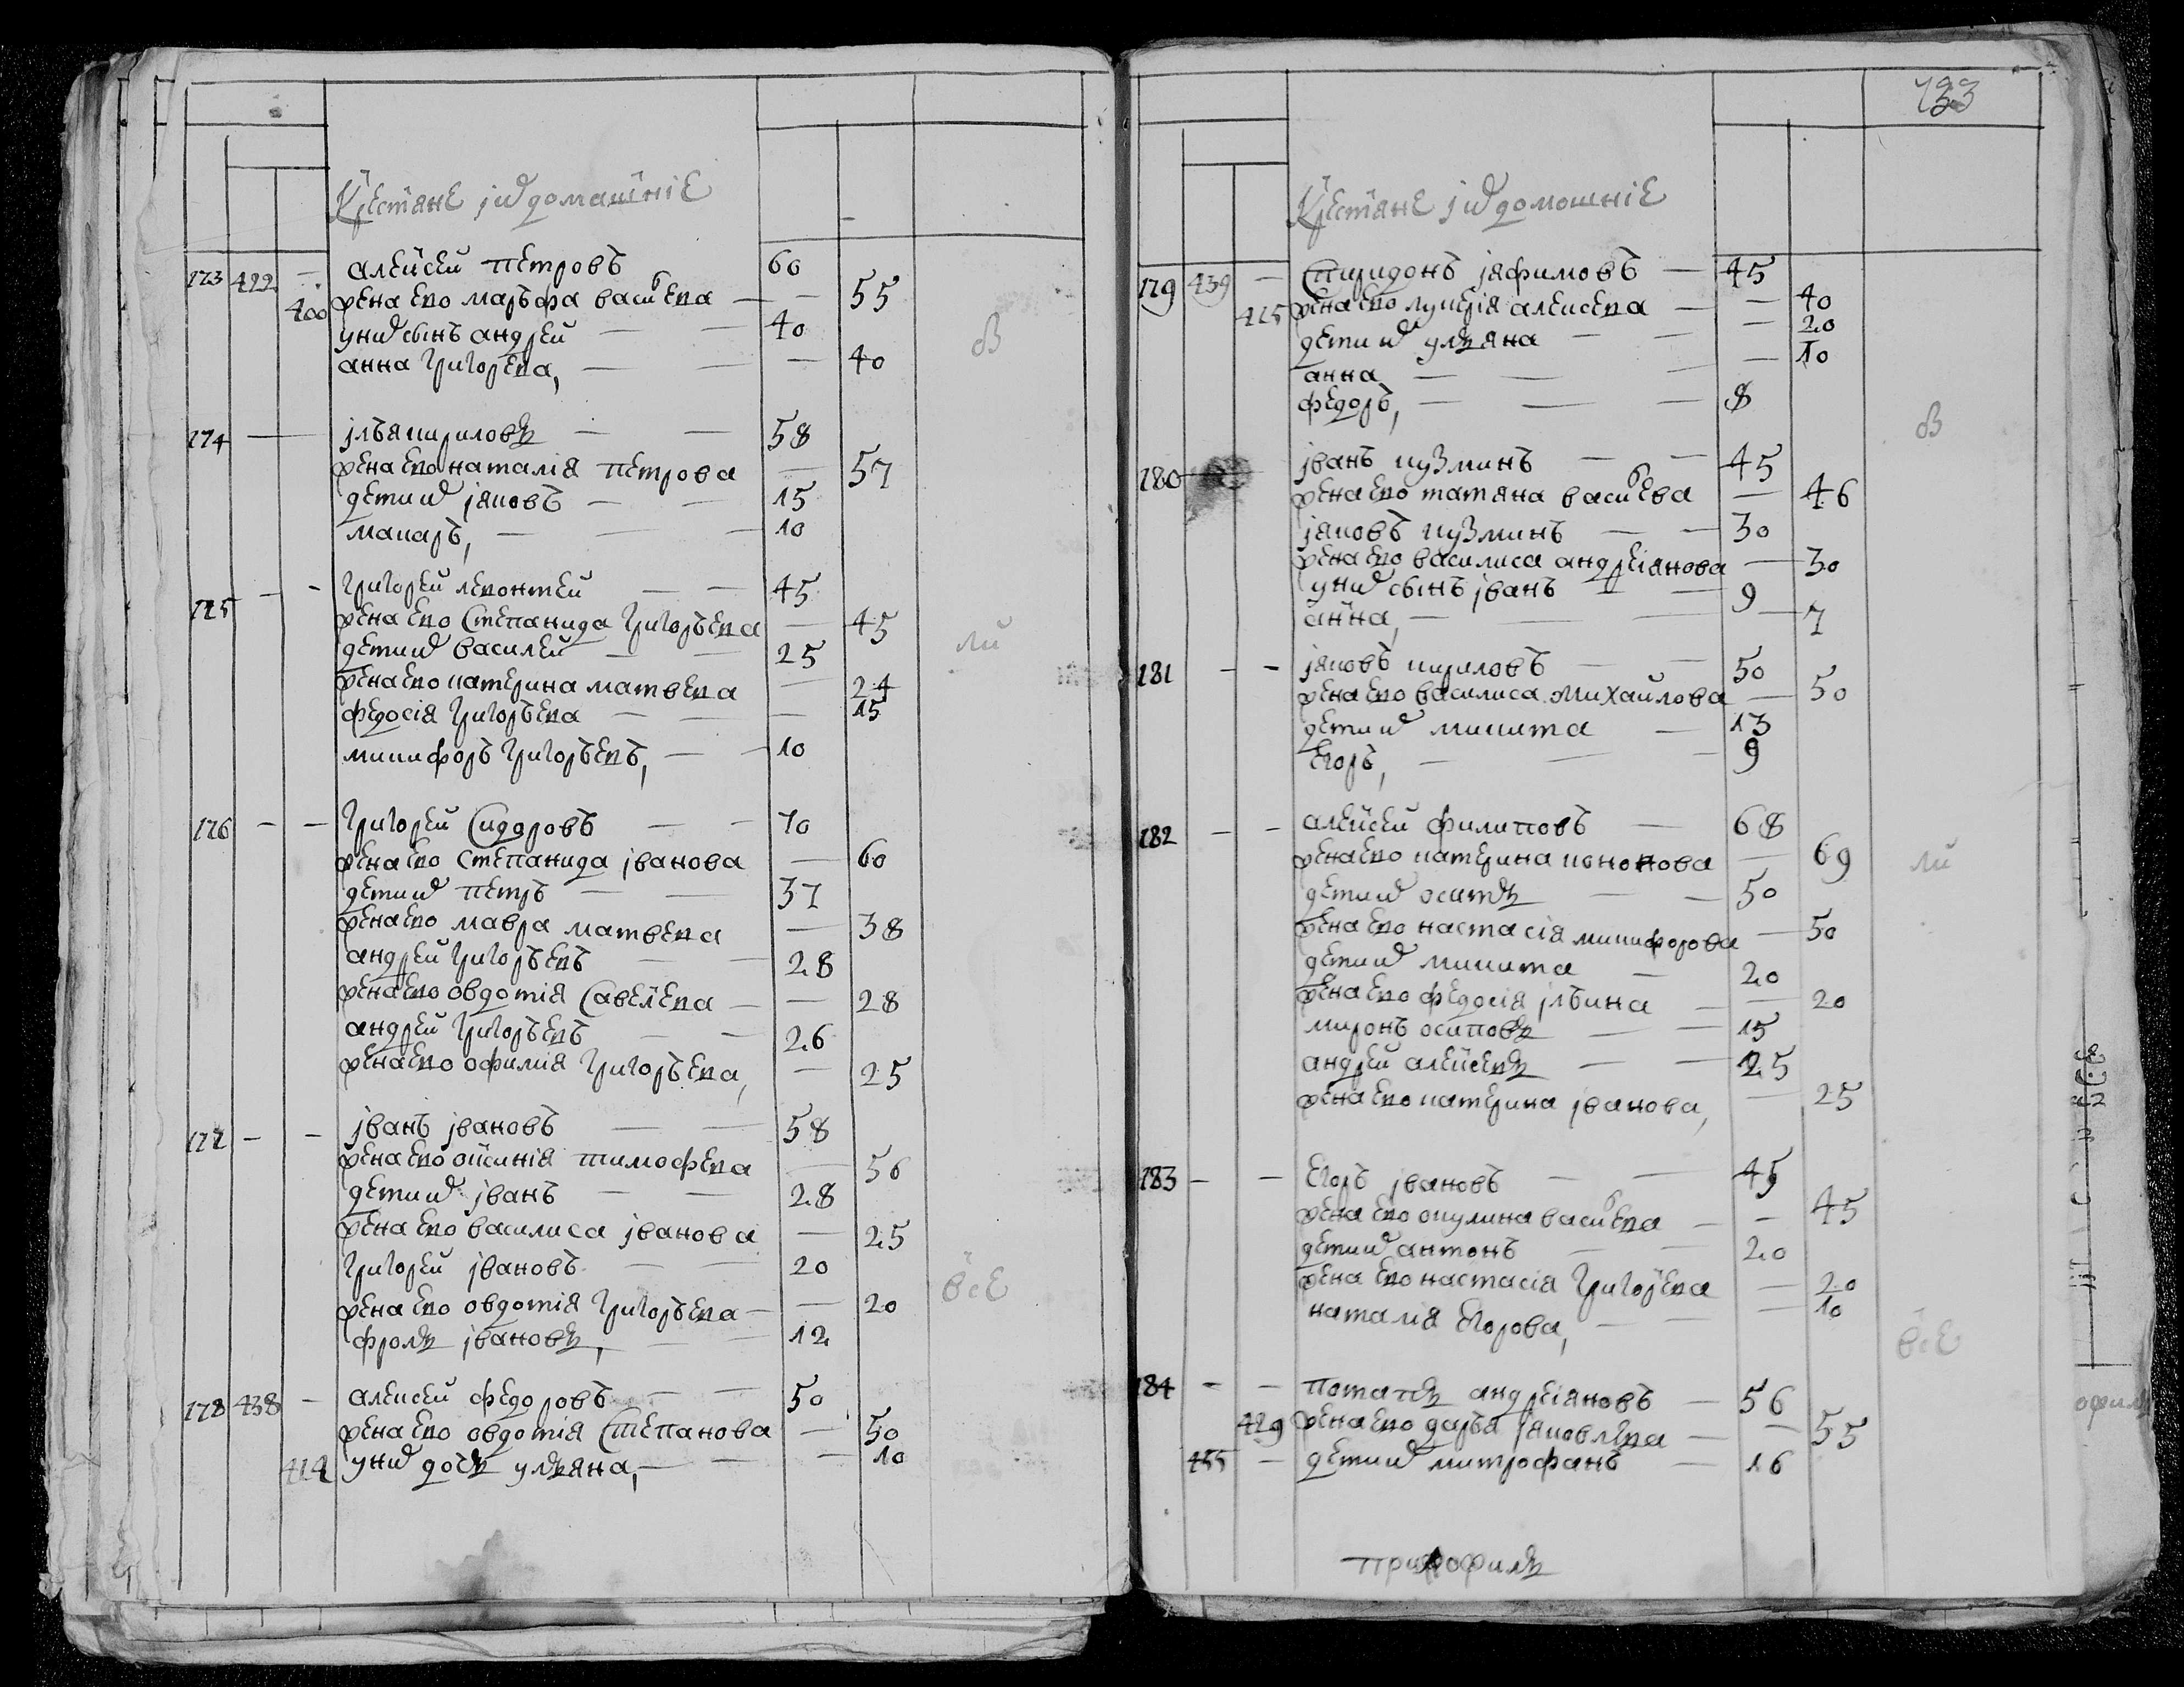 Крестяне ихъ домашние
173 422 — алексеи петровъ — 60
400 жена ево марьфа васильева — 55
у них сынъ андреи — 40
анна григорева, — 40
174 — ілья кириловъ — 58
жена ево наталия петрова — 57
дети их іяковъ — 15
макаръ, — 10
175 — — григореи левонтеи — 45
жена ево степанида григорьева — 45
дети их василеи — 25
жена ево катерина матвева — 24
федосия григорьева — 15
микифоръ григорьевъ, — 10
ли
176 — — григореи сидоровъ — 70
жена ево степанида іванова — 60
дети их петръ — 37
жена ево мавра матвева — 38
андреи григорьевъ — 28
жена ево овдотия савелева — 28
андреи григорьевъ — 26
жена ево офимия григорьева, — 25
177 — — іванъ івановъ — 58
жена ево оксиния тимофева — 56
дети их іванъ — 28
жена ево василиса іванова — 25
григореи івановъ — 20
жена ево овдотия григорьева — 20
фролъ івановъ, — 12
все
178 438 — алексеи федоровъ — 50
жена ево овдотия степанова — 50
414 у них дочь ульяна, — 10
733
Крестяне ихъ домошние
179 439 — спиридонъ іяфимовъ — 45
415 жена ево лукерия алексева — 40
дети их ульяна — 20
анна — 10
федоръ, — 8
180 — іванъ кузминъ — 45
жена ево татяна васильева — 46
іяковъ кузминъ — 30
жена ево василиса андреиянова — 30
у них сынъ іванъ — 9
анна, — 7
181 — — іяковъ кириловъ — 50
жена ево василиса михаилова — 50
дети их микита — 13
егоръ, — 9
182 — — алексеи филиповъ — 68
жена ево катерина кононова — 69
ли
дети их осипъ — 50
жена ево настасия микифорова — 50
дети их микита — 20
жена ево федосия ільина — 20
миронъ осиповъ — 15
андреи алексевъ — 25
жена ево катерина іванова, — 25
183 — — егоръ івановъ — 45
жена ево окулина васильева — 45
дети их антонъ — 20
жена ево настасия григорева — 20
наталия егорова, — 10
все
184 — — потапъ андреияновъ — 56
429 жена ево дарья іяковлева — 55
455 — дети их митрофанъ — 16